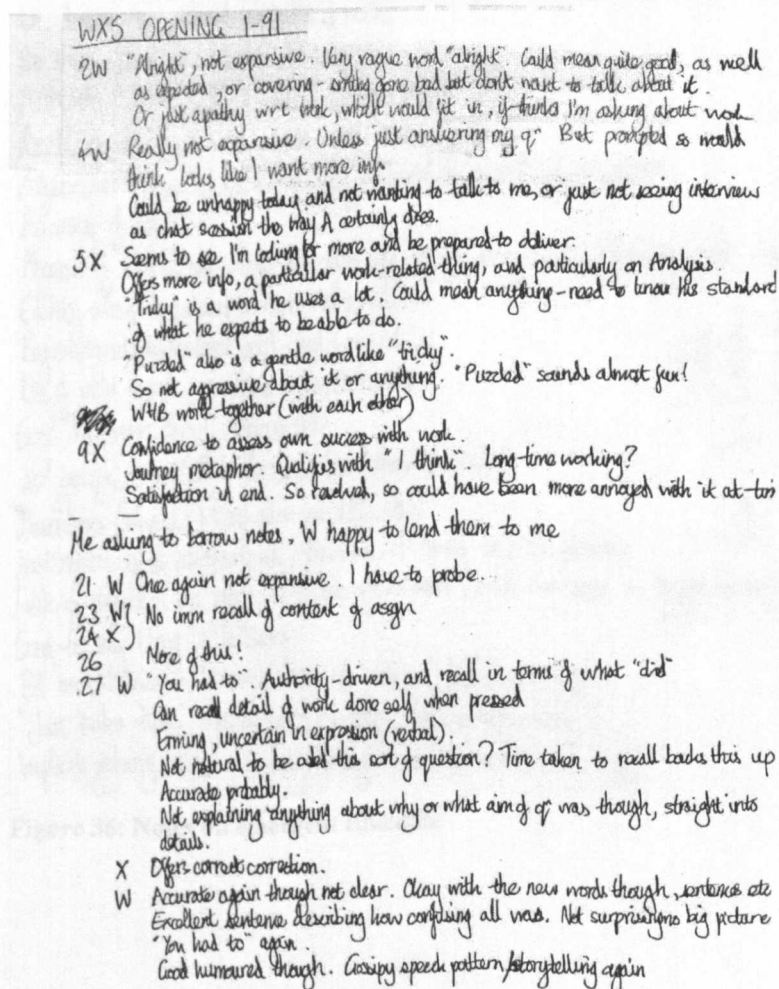 WXS OPENING 1-91
2W "Alright", not expansive. Very vague word "alright". Could mean quite good, as well
as expected, or covering - smthg gone bad but don't want to talk about it.
Or just apathy wrt work, which would fit in, if thinks I'm asking about work
4W Really not expansive. Unless just answering my qn. But prompted so would
think looks like I want more info.
Could be unhappy today and not wanting to talk to me, or just not seeing interview
as chat session the way A certainly does.
5X Seems to see I'm looking for more and be prepared to deliver.
Offers more info, a particular work-related thing, and particularly on Analysis.
"Tricky" is a word he uses a lot. Could mean anything - need to know his standard
of what he expects to be able to do.
"Puzzled" also is a gentle word like "tricky".
So not aggressive about it or anything. "Puzzled" sounds almost fun!
W+B work together (with each other)
9X Confidence to assess own success with work.
Journey metaphor. Qualifies with "I think". Long-time working?
Satisfaction in end. So resolved, so could have been more annoyed with it at tim
Me asking to borrow notes, W happy to lend them to me
21 W Once again not expansive. I have to probe.
23 W} No imm recall of content of assgn
24 X}
26 More of this!
27 W "You had to". Authority-driven, and recall in terms of what "did"
Can recall detail of work done self when pressed
Erming, uncertain in expression (verbal).
Not natural to be asked this sort of question? Time taken to recall backs this up
Accurate probably.
Not explaining anything about why or what aim of qn was though, straight into
details.
X Offers correct correction.
W Accurate again though not clear. Okay with the new words though, sentences etc
Excellent sentence describing how confusing all was. Not surprising no big picture
"You had to" again.
Good humoured though. Gossipy speech pattern/storytelling again
Figure 36: Notes